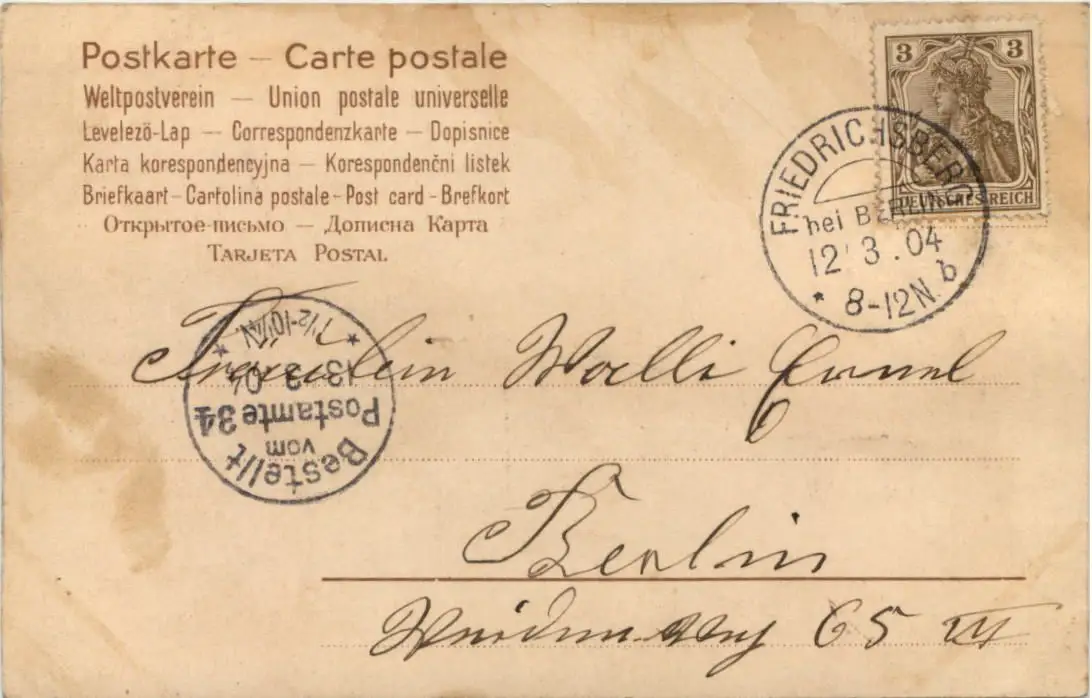 Postkarte – Carte postale
Weltpostverein – Union postale universelle
Levelező-Lap – Correspondenzkarte – Dopisnice
Karta korespondencyjna – Korespondenční listek
Briefkaart – Cartolina postale – Post card – Brefkort
Открытое письмо – Дописна Карта
TARJETA POSTAL
3 3
DEUTSCHES REICH
FRIEDRICHSBERG
bei BERLIN
12 3.04
* 8-12N. b
Bestellt
vom
Postamte 34
13.3.04
* 7 1/2-10 1/2 N *
Fräulein Walli
Berlin
65